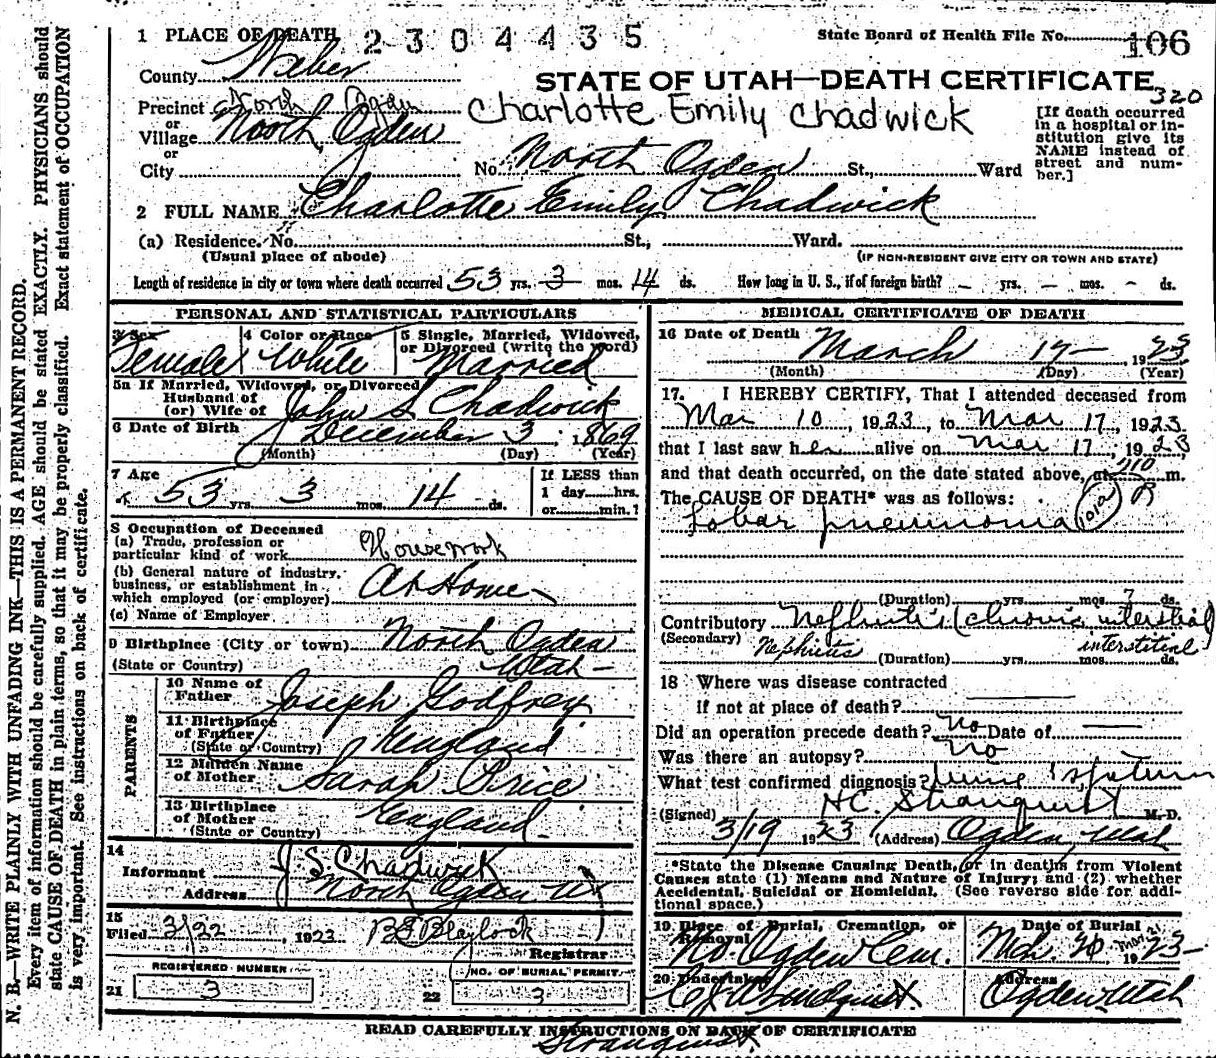 1 PLACE OF DEATH 2304435 State Board of Health File No. 106
County Weber
STATE OF UTAH—DEATH CERTIFICATE 320
Precinct North Ogden
or
Village North Ogden
Charlotte Emily Chadwick
[If death occurred in a hospital or institution give its NAME instead of street and number.]
or
City No. North Ogden St., Ward
2 FULL NAME Charlotte Emily Chadwick
(a) Residence. No. St., Ward.
(Usual place of abode) (IF NON-RESIDENT GIVE CITY OR TOWN AND STATE)
Length of residence in city or town where death occurred 53 yrs. 3 mos. 14 ds. How long in U. S., if of foreign birth? – yrs. – mos. – ds.
PERSONAL AND STATISTICAL PARTICULARS
3 Sex Female
4 Color or Race White
5 Single, Married, Widowed, or Divorced (write the word) Married
5a If Married, Widowed, or Divorced
Husband of
(or) Wife of John S Chadwick
6 Date of Birth December 3, 1869
(Month) (Day) (Year)
7 Age 53 yrs. 3 mos. 14 ds.
If LESS than
1 day......hrs.
or......min.?
8 Occupation of Deceased
(a) Trade, profession or
particular kind of work Housework
(b) General nature of industry,
business, or establishment in
which employed (or employer) At Home
(c) Name of Employer
9 Birthplace (City or town) North Ogden
(State or Country) Utah
PARENTS
10 Name of Father Joseph Godfrey
11 Birthplace of Father
(State or Country) England
12 Maiden Name of Mother Sarah Price
13 Birthplace of Mother
(State or Country) England
14
Informant J S Chadwick
Address North Ogden Ut
15
Filed 3/22, 1923 Blaylock
Registrar
REGISTERED NUMBER
21 3
NO. OF BURIAL PERMIT.
22 3
MEDICAL CERTIFICATE OF DEATH
16 Date of Death March 17 1923
(Month) (Day) (Year)
17. I HEREBY CERTIFY, That I attended deceased from
Mar 10, 1923, to Mar 17, 1923
that I last saw her alive on Mar 17, 1923,
and that death occurred, on the date stated above, at 210 P m.
The CAUSE OF DEATH* was as follows:
Lobar pneumonia 101a
(Duration) yrs. mos. 7 ds.
Contributory Nephritis (chronic interstitial)
(Secondary) Nephritis interstitial
(Duration) yrs. mos. ds.
18 Where was disease contracted
if not at place of death?
Did an operation precede death? No Date of
Was there an autopsy? No
What test confirmed diagnosis? Urine & sputum
(Signed) H.C. Stranquist M.D.
3/19 1923 (Address) Ogden, Utah
*State the Disease Causing Death, or in deaths from Violent
Causes state (1) Means and Nature of Injury; and (2) whether
Accidental, Suicidal or Homicidal. (See reverse side for additional space.)
19 Place of Burial, Cremation, or Removal No. Ogden Cem.
Date of Burial Mch. 20, Mar 21 1923
20 Undertaker
Address Ogden Utah
READ CAREFULLY INSTRUCTIONS ON BACK OF CERTIFICATE
Stranquist
N. B.—WRITE PLAINLY WITH UNFADING INK—THIS IS A PERMANENT RECORD.
Every item of information should be carefully supplied. AGE should be stated EXACTLY. PHYSICIANS should
state CAUSE OF DEATH in plain terms, so that it may be properly classified. Exact statement of OCCUPATION
is very important. See instructions on back of certificate.